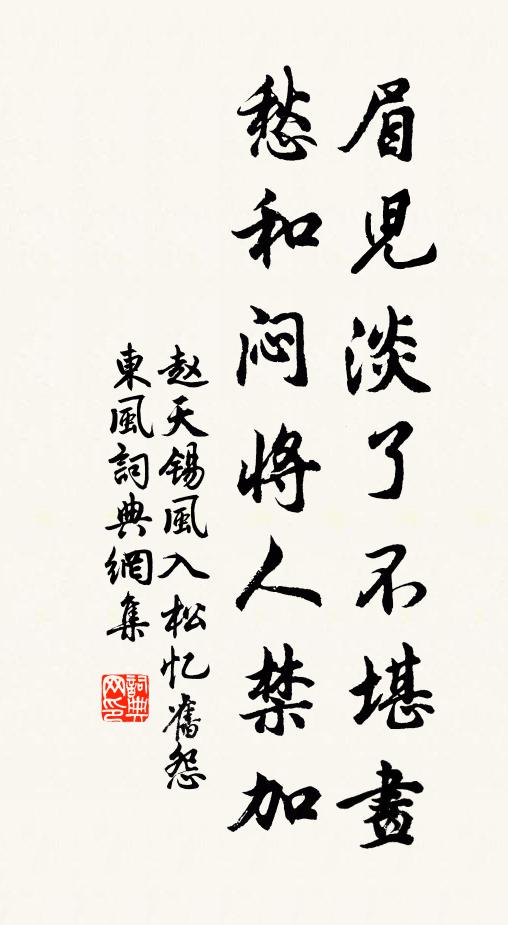 眉児淡了不堪畫
愁和闷將人禁加
赵天锡風入松忆舊怨
東風詞典網集
詞典
网印